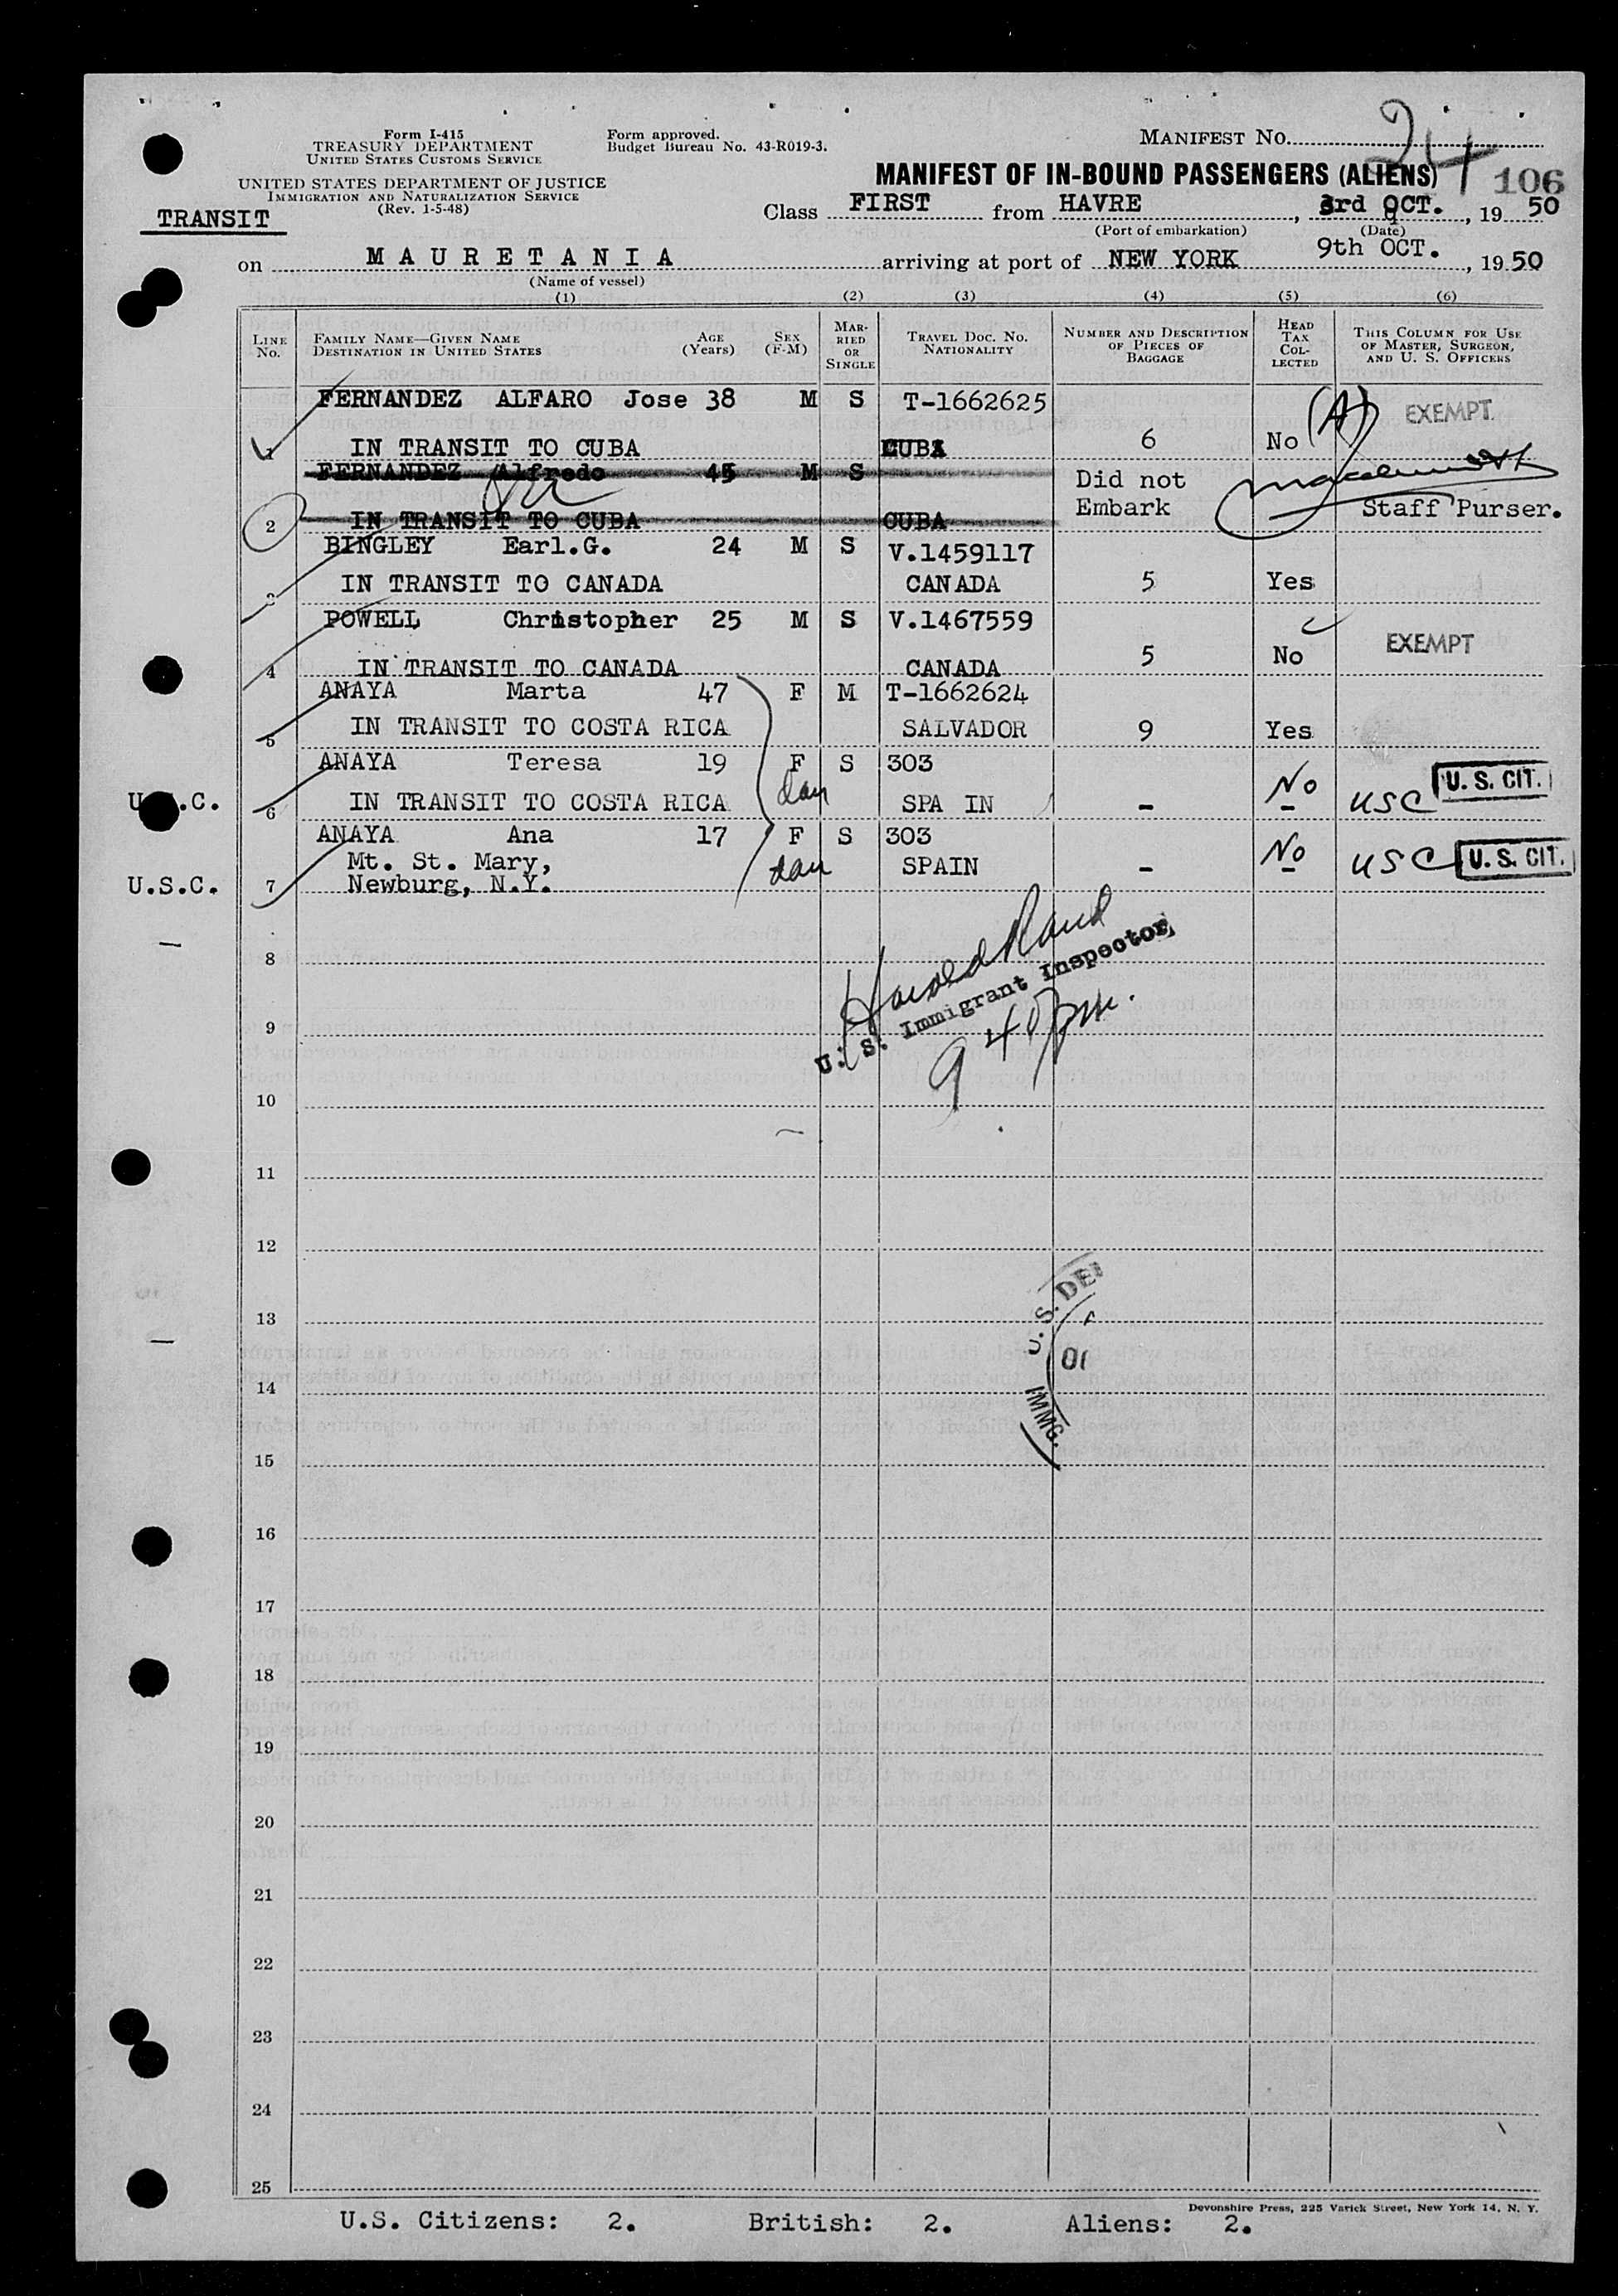 Form I-415
TREASURY DEPARTMENT
UNITED STATES CUSTOMS SERVICE
UNITED STATES DEPARTMENT OF JUSTICE
IMMIGRATION AND NATURALIZATION SERVICE
(Rev. 1-5-48)
TRANSIT
Form approved.
Budget Bureau No. 43-R019-3.
MANIFEST No. 24
MANIFEST OF IN-BOUND PASSENGERS (ALIENS) 106
Class FIRST from HAVRE, 3rd OCT., 1950
(Port of embarkation) (Date)
on MAURETANIA arriving at port of NEW YORK 9th OCT., 1950
(Name of vessel)
(1) (2) (3) (4) (5) (6)
LINE No. FAMILY NAME—GIVEN NAME DESTINATION IN UNITED STATES AGE (Years) SEX (F-M) MARRIED OR SINGLE TRAVEL DOC. NO. NATIONALITY NUMBER AND DESCRIPTION OF PIECES OF BAGGAGE HEAD TAX COLLECTED THIS COLUMN FOR USE OF MASTER, SURGEON, AND U. S. OFFICERS
FERNANDEZ ALFARO Jose 38 M S T-1662625 (A) EXEMPT
1 IN TRANSIT TO CUBA CUBA 6 No
FERNANDEZ Alfredo 45 M S Did not
2 IN TRANSIT TO CUBA CUBA Embark Staff Purser.
BINGLEY Earl.G. 24 M S V.1459117
3 IN TRANSIT TO CANADA CANADA 5 Yes
POWELL Christopher 25 M S V.1467559 EXEMPT
4 IN TRANSIT TO CANADA CANADA 5 No
ANAYA Marta 47 F M T-1662624
5 IN TRANSIT TO COSTA RICA SALVADOR 9 Yes
ANAYA Teresa 19 F S 303
U.S.C. 6 IN TRANSIT TO COSTA RICA dau SPA IN - No USC U. S. CIT.
ANAYA Ana 17 F S 303
Mt. St. Mary, dau SPAIN - No USC U. S. CIT.
U.S.C. 7 Newburg, N.Y.
8
U. S. Immigrant Inspector
9
9 40 pm.
10
11
12
13
U. S. DE
14
IMMG.
15
16
17
18
19
20
21
22
23
24
25
Devonshire Press, 225 Varick Street, New York 14, N. Y.
U.S. Citizens: 2. British: 2. Aliens: 2.